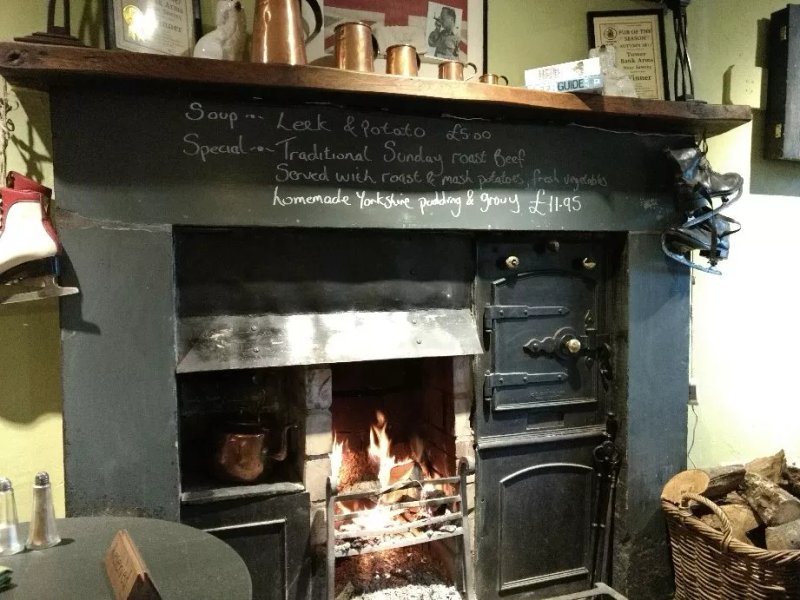 PUB OF THE
SEASON
Tower
Bank Arms
Winner
GUIDE
Soup - Leek & Potato £5.00
Special - Traditional Sunday roast Beef
Served with roast & mash potatoes, fresh vegetables
homemade Yorkshire pudding & gravy £11.95